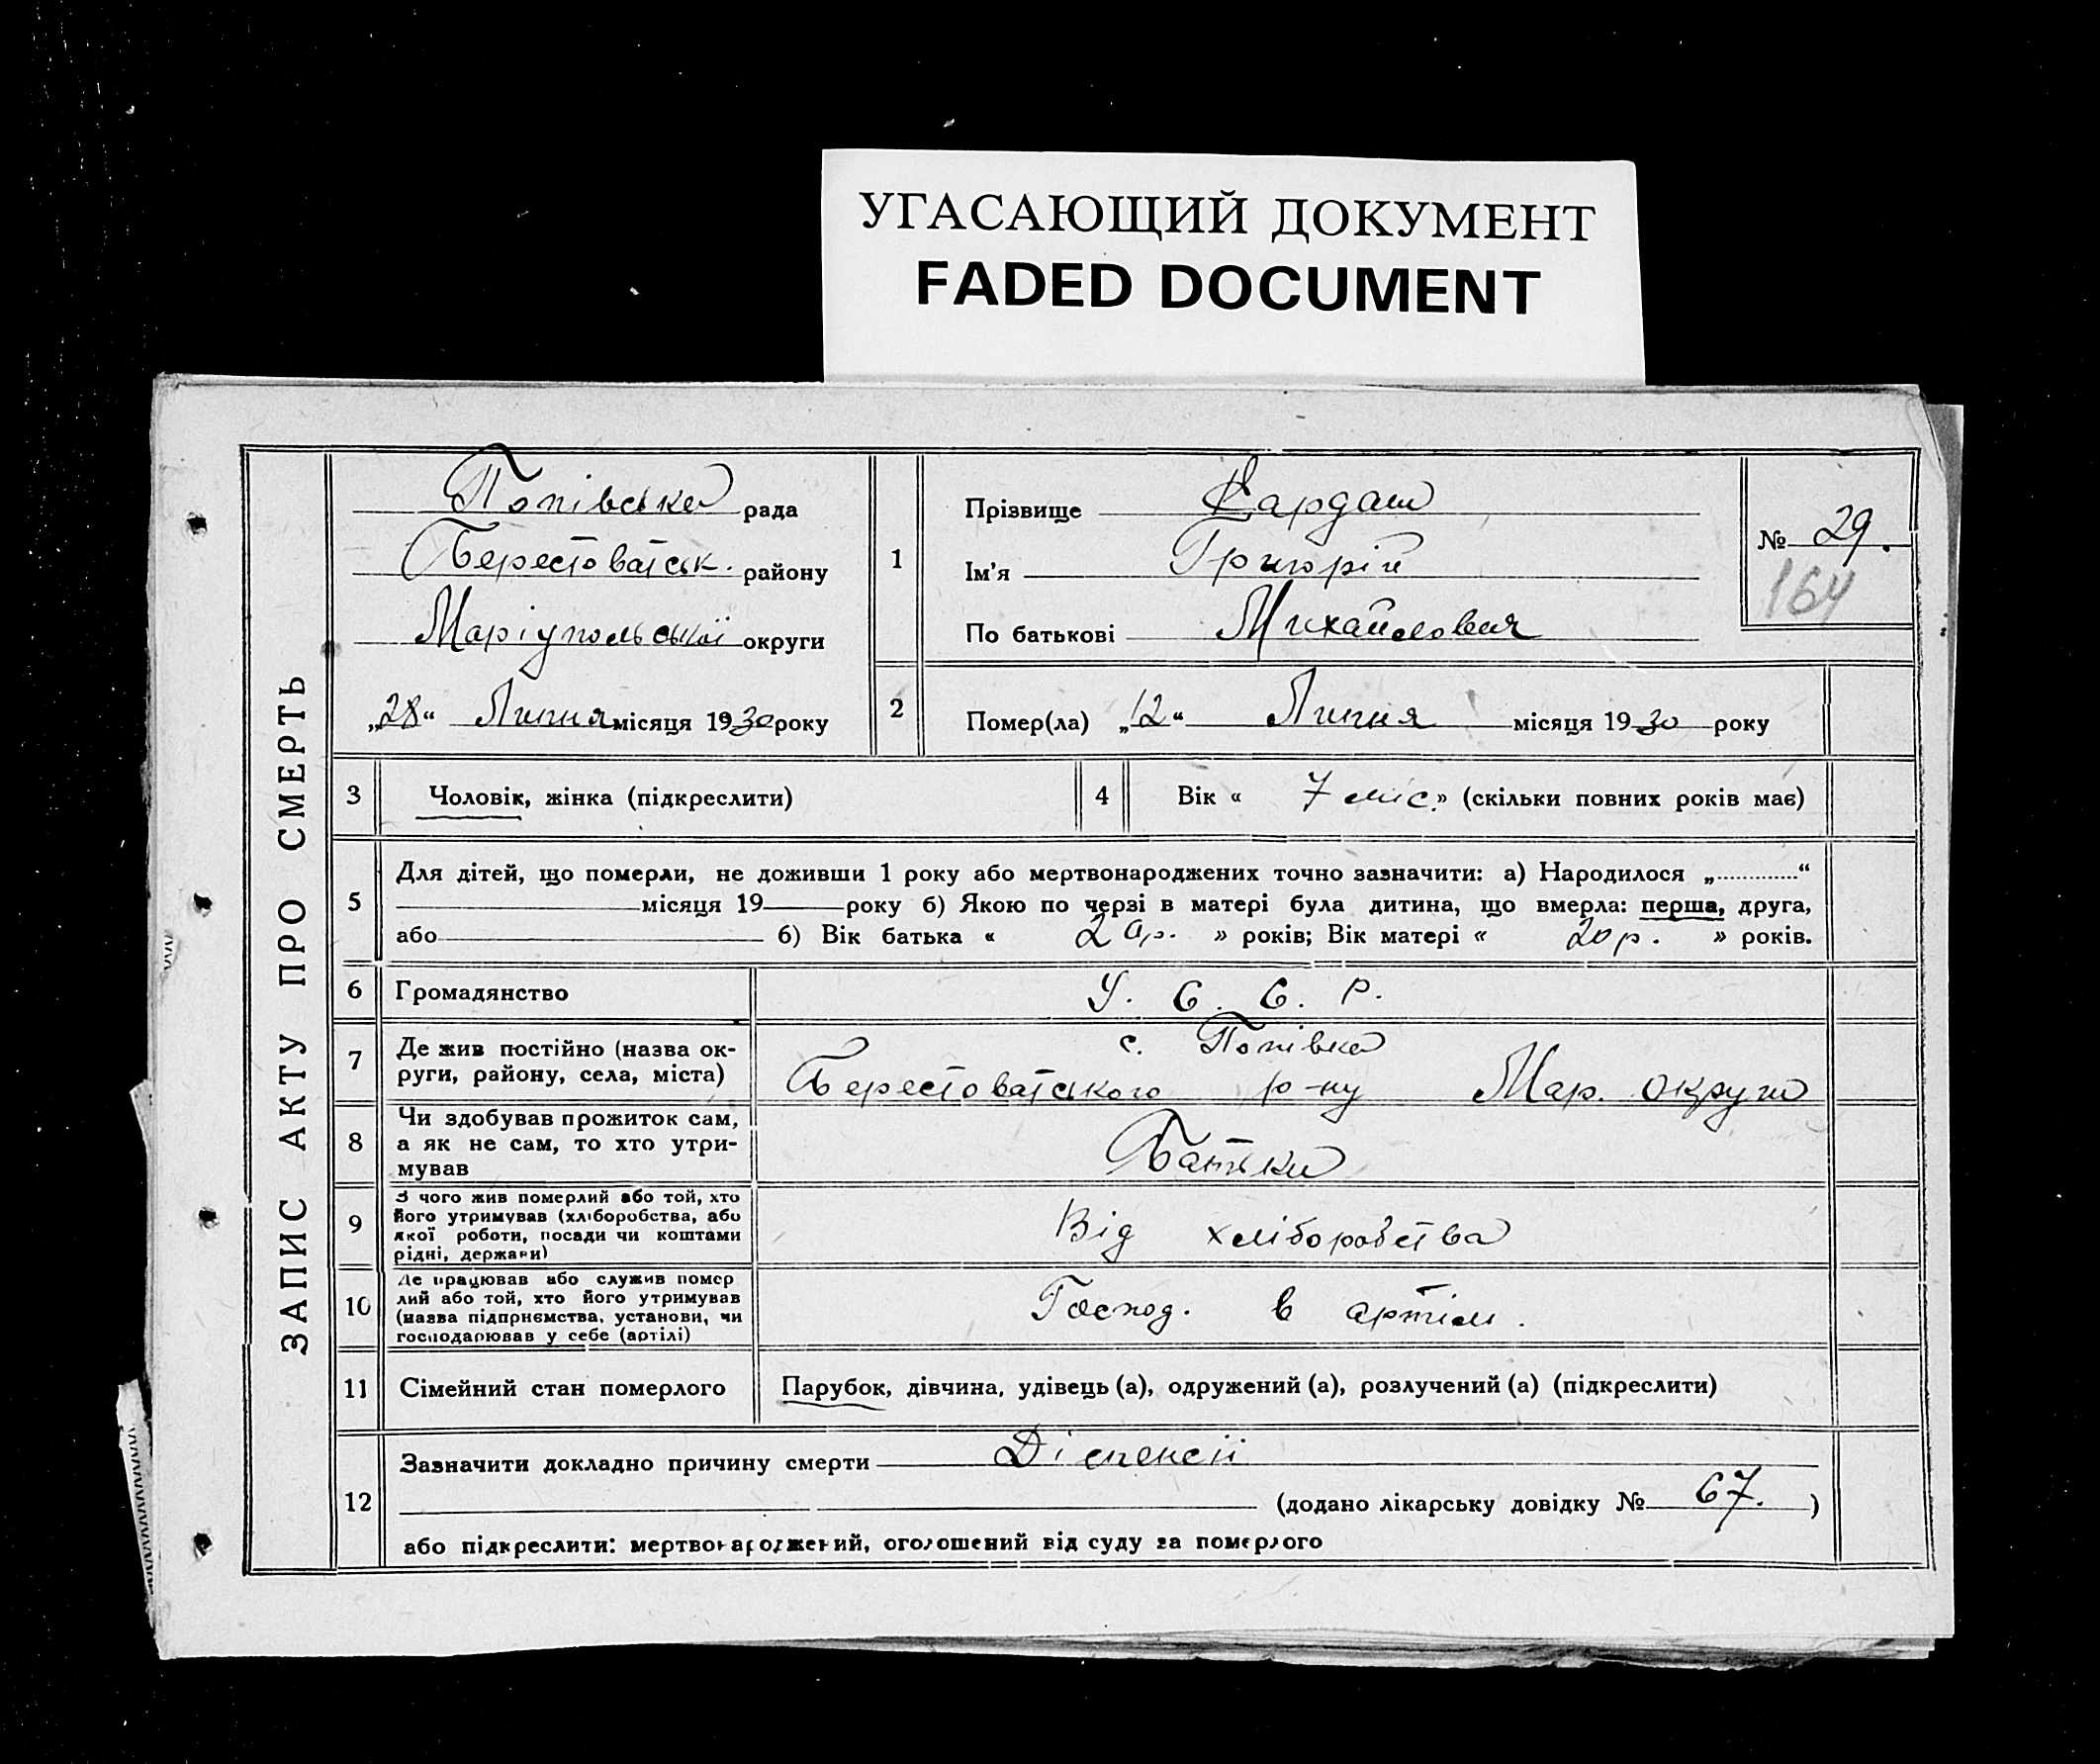 УГАСАЮЩИЙ ДОКУМЕНТ
FADED DOCUMENT
ЗАПИС АКТУ ПРО СМЕРТЬ
Попівська рада
Берестоватськ. району
Маріупольської округи
„28“ Липня місяця 1930 року
1
Прізвище Кардаш
Ім'я Григорій
По батькові Михайлович
№ 29.
164
2
Помер(ла) „12“ Липня місяця 1930 року
3 Чоловік, жінка (підкреслити)
4 Вік « 7 міс.» (скільки повних років має)
5
Для дітей, що померли, не доживши 1 року або мертвонароджених точно зазначити: а) Народилося „.............“
місяця 19 року б) Якою по черзі в матері була дитина, що вмерла: перша, друга,
або 6) Вік батька « р. » років; Вік матері « 20 р. » років.
6 Громадянство У. С. С. Р.
7
Де жив постійно (назва ок-
руги, району, села, міста)
с. Попівка
Берестоватського р-ну Мар. округи
8
Чи здобував прожиток сам,
а як не сам, то хто утри-
мував
Батьки
9
З чого жив померлий або той, хто
його утримував (хліборобства, або
якої роботи, посади чи коштами
рідні, держави)
Від хліборобства
10
Де працював або служив помер
лий або той, хто його утримував
(назва підприємства, установи, чи
господарював у себе (артілі)
Господ. в артіли.
11 Сімейний стан померлого Парубок, дівчина, удівець (а), одружений (а), розлучений (а) (підкреслити)
12
Зазначити докладно причину смерти Діспенсії
(додано лікарську довідку № 67. )
або підкреслити: мертвонароджений, оголошений від суду за померлого